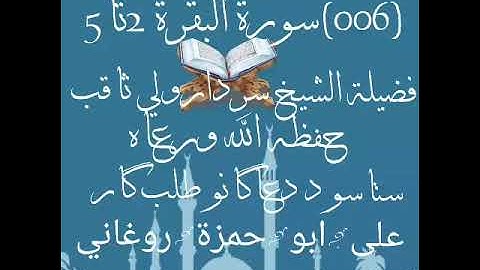 (006)سورة البقرة 2تا 5
فضيلة الشيخ سردارولي ثاقب
حفظه الله ورعاه
ستاسو د دعاگانو طلب گار
علي ابو حمزة روغاني